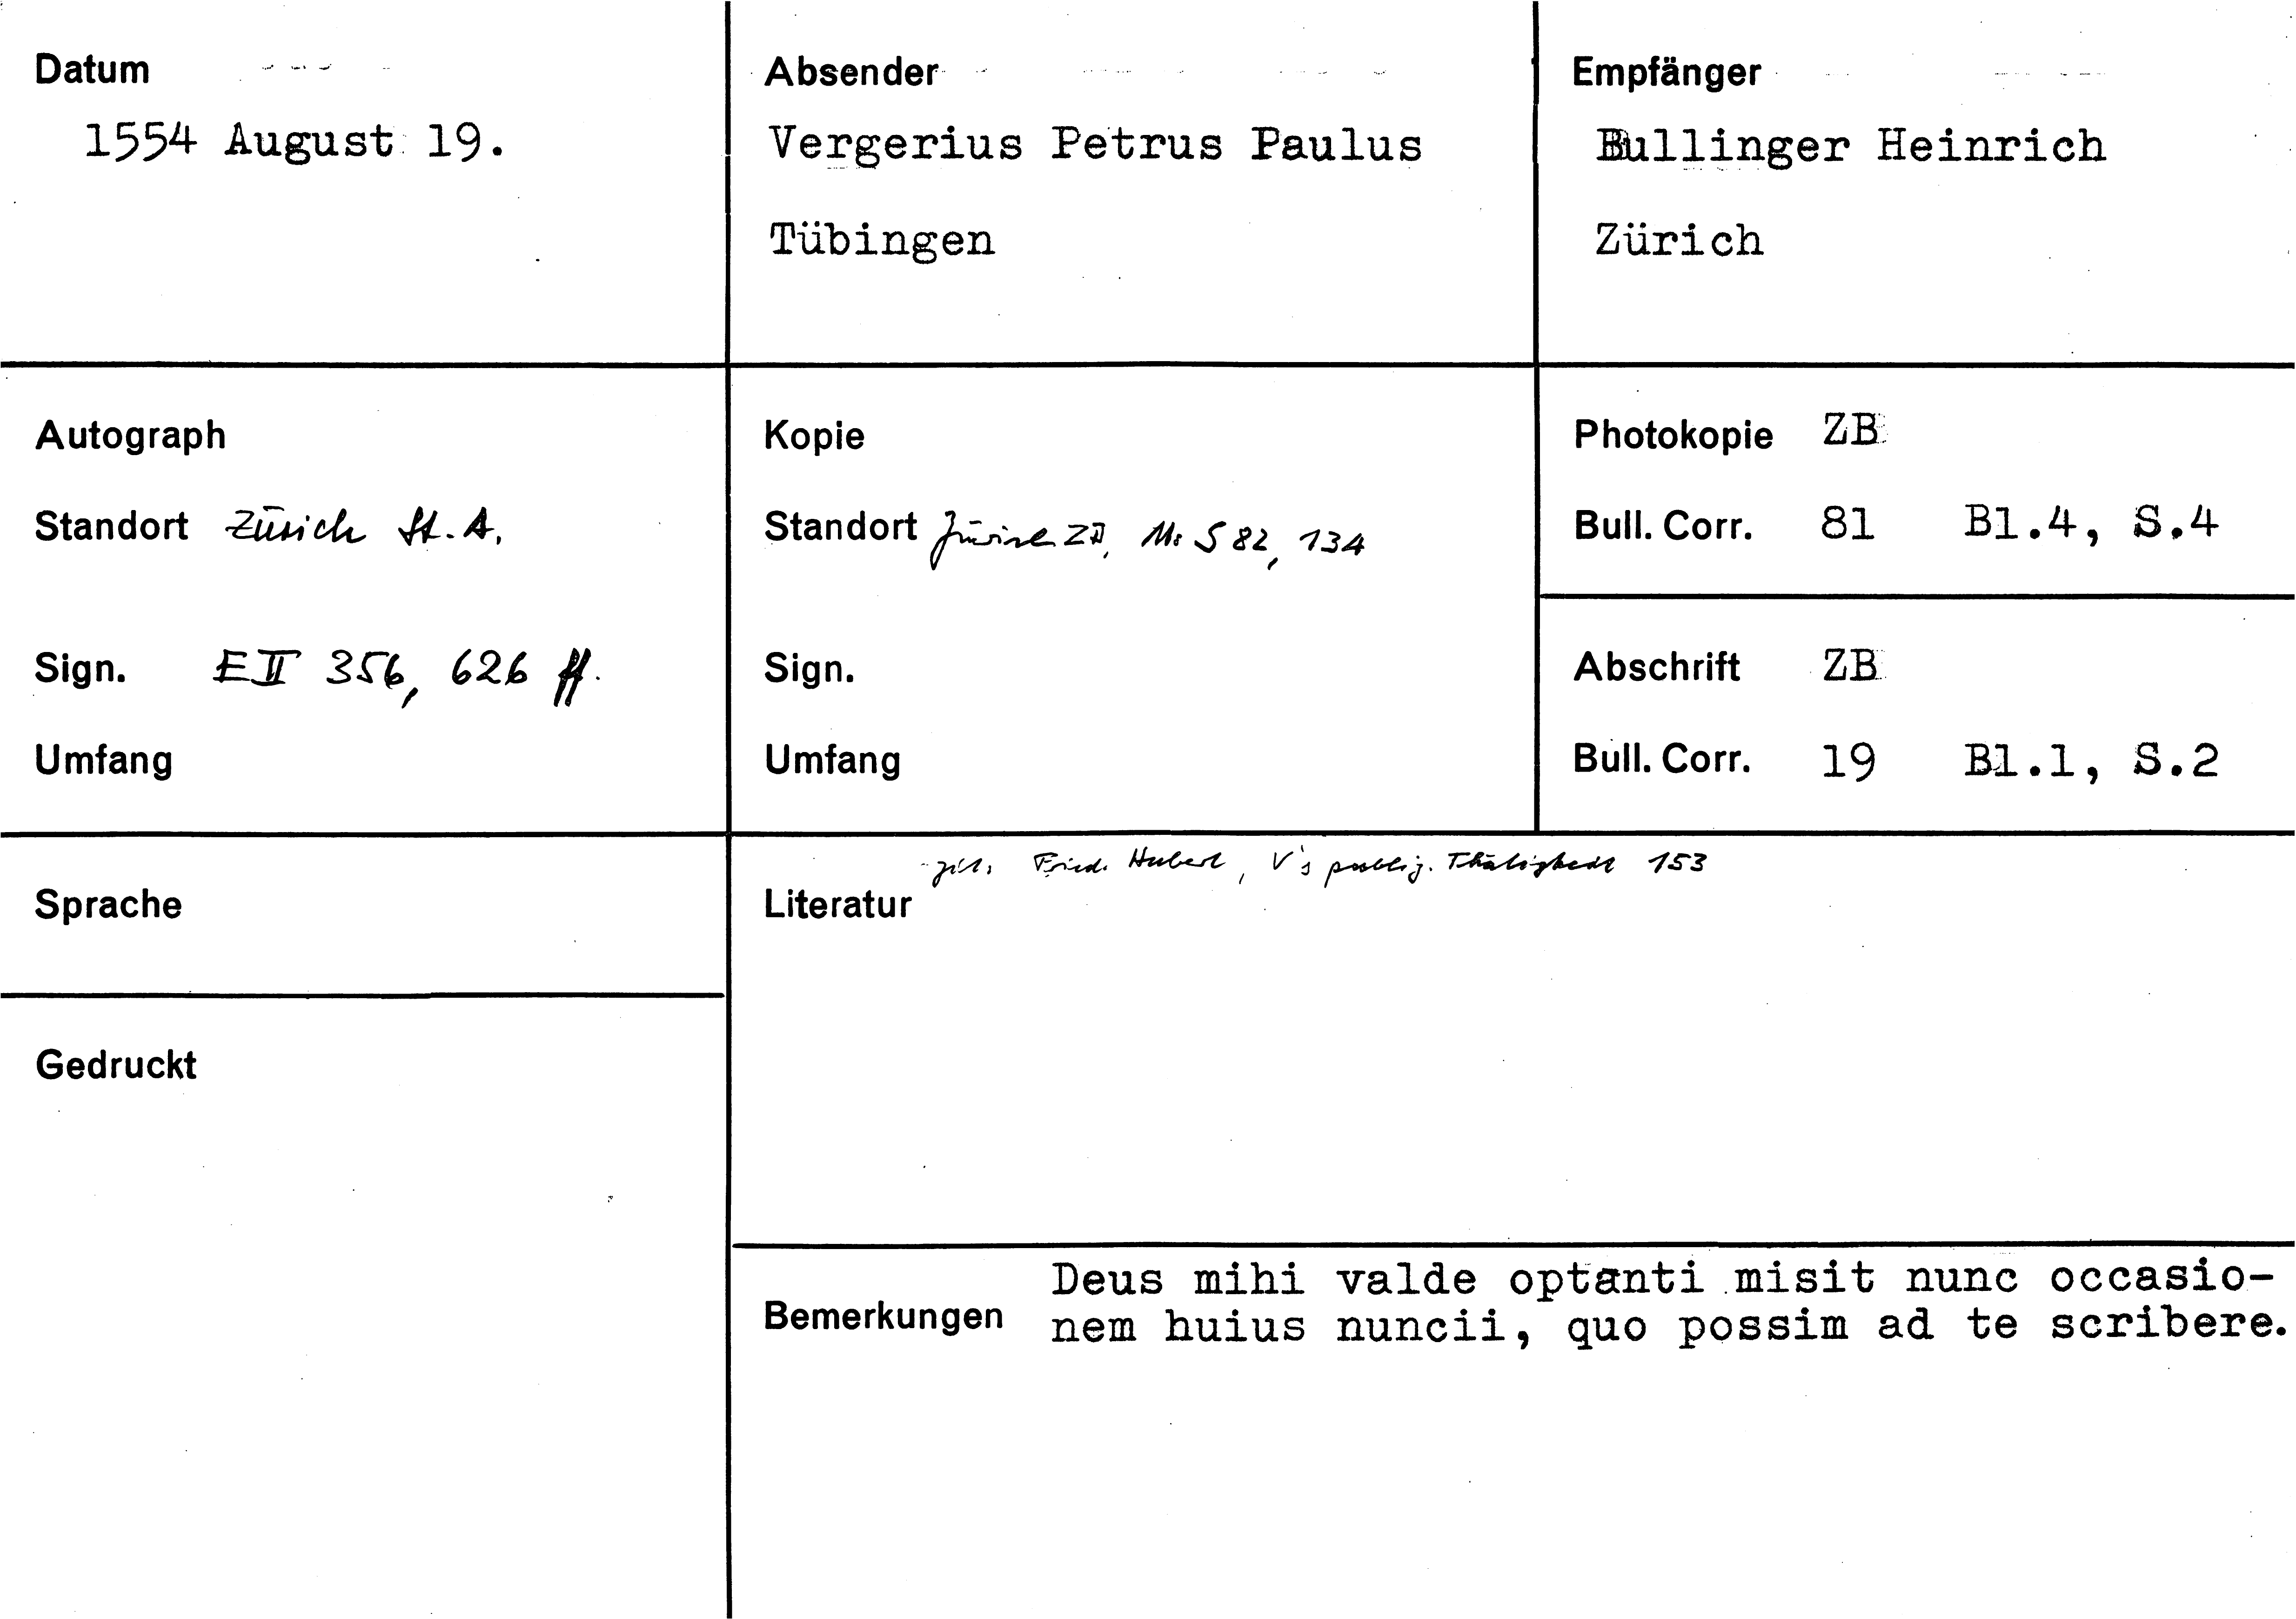 Datum
1554 August 19.
Absender
Vergerius Petrus Paulus
Tübingen
Empfänger
Bullinger Heinrich
Zürich
Autograph
Standort Zürich St. A.
Sign. E II 356, 626 ff.
Umfang
Kopie
Standort Zürich ZB, Ms S 82, 134
Sign.
Umfang
Photokopie ZB
Bull. Corr. 81 Bl.4, S.4
Abschrift ZB
Bull. Corr. 19 Bl.1, S.2
Sprache
Gedruckt
zit. Fried. Hubert, V's publiz. Thätigkeit 153
Literatur
Deus mihi valde optanti misit nunc occasio-
Bemerkungen nem huius nuncii, quo possim ad te scribere.